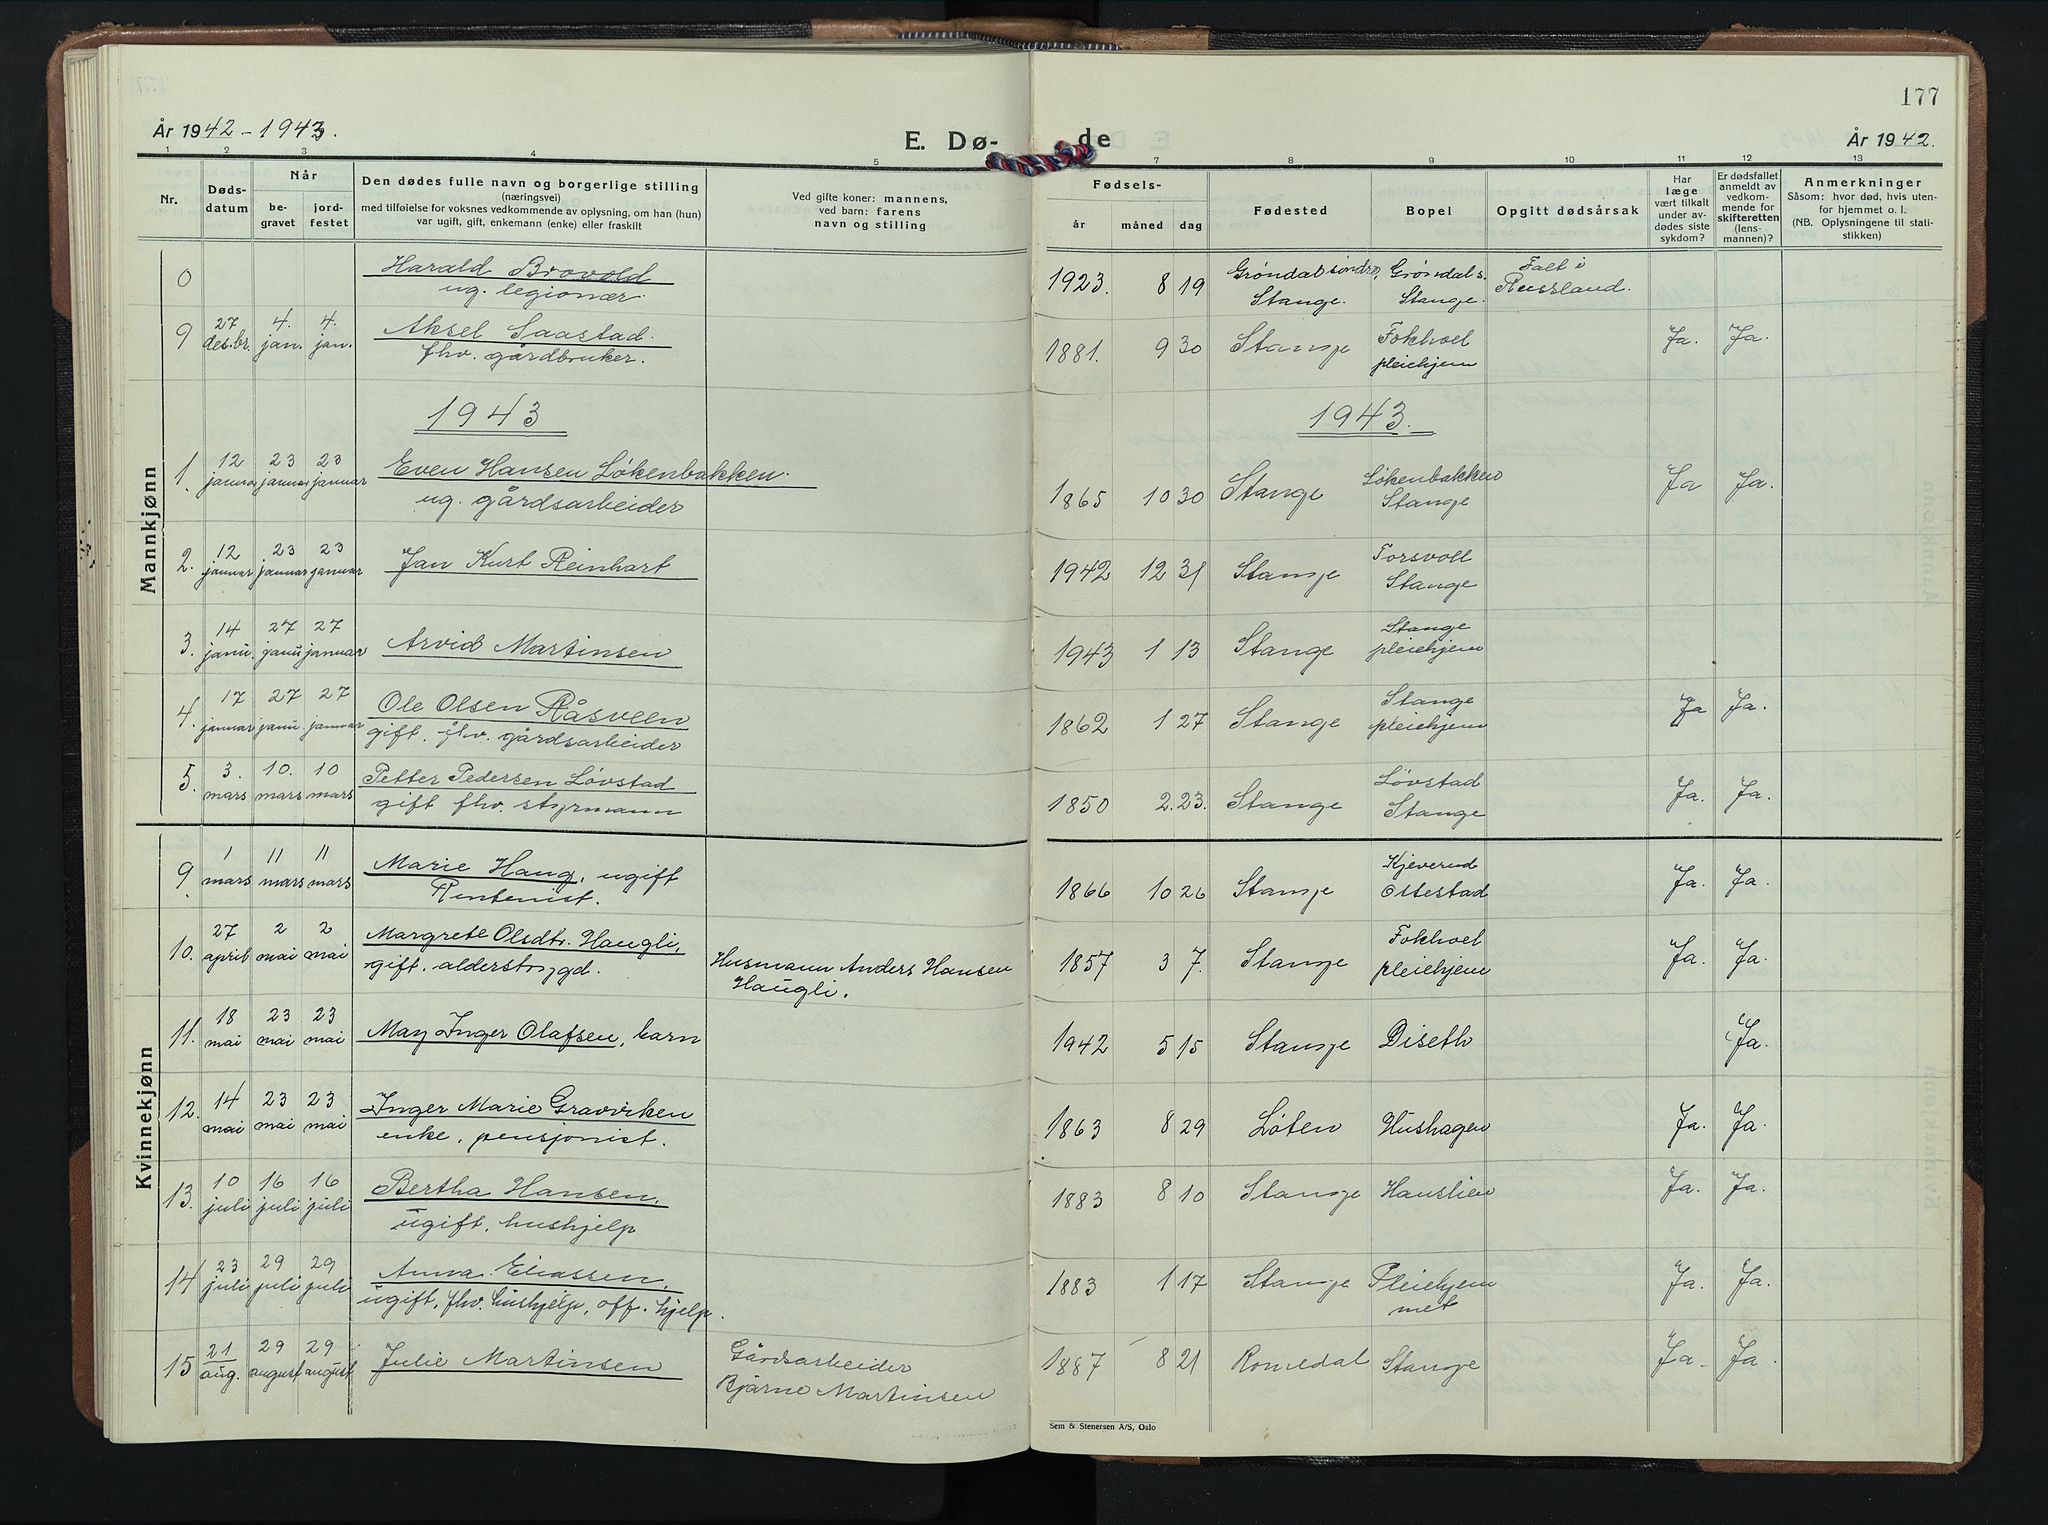 177
År 1942 - 1943.
E. Dø-
de
År 1942.
1 2 3 4 5 7 8 9 10 11 12 13
Nr.
Døds-
datum
Når
be-
gravet
jord-
festet
Den dødes fulle navn og borgerlige stilling
(næringsvei)
med tilføielse for voksnes vedkommende av oplysning, om han (hun)
var ugift, gift, enkemann (enke) eller fraskilt
Ved gifte koner: mannens,
ved barn: farens
navn og stilling
Fødsels-
år måned dag
Fødested
Bopel
Opgitt dødsårsak
Har
læge
vært tilkalt
under av-
dødes siste
sykdom?
Er dødsfallet
anmeldt av
vedkom-
mende for
skifteretten
(lens-
mannen)?
Anmerkninger
Såsom: hvor død, hvis uten-
for hjemmet o. l.
(NB. Oplysningene til stati-
stikken)
Mannkjønn
0 Harald Brovold 1923. 8 19 Grøndal søndre, Grøndal s. Falt i
ug. legionær. Stange. Stange. Russland.
9 27 4. 4. Aksel Saastad. 1881. 9 30 Stange Fokhoel Ja. Ja.
des.br. jan. jan. fhv. gårdbruker. pleiehjem
1943 1943.
1. 12 23 23 Even Hansen Løkenbakken. 1865 10 30 Stange Løkenbakken Ja Ja.
januar januar januar ug. gårdsarbeider Stange
2. 12 23 23 Jan Kurt Reinhart 1942 12 31 Stange Forsvoll
januar januar januar Stange
3. 14 27 27 Arvid Martinsen 1943 1 13 Stange Stange
janu. janu januar pleiehjem
4. 17 27 27 Ole Olsen Råsveen 1862 1 27 Stange Stange Ja Ja.
januar janu. januar gift, fhv. gårdsarbeider pleiehjem
5. 3. 10. 10 Petter Pedersen Løvstad 1850 2. 23. Stange Løvstad Ja. Ja.
mars mars mars gift fhv. styrmann Stange
Kvinnekjønn
9 1 11 11 Marie Haug, ugift 1866 10 26 Stange Kjeverud Ja. Ja.
mars mars mars Rentenist. Ottestad
10. 27 2 2 Margrete Olsdtr. Haugli, Husmann Anders Hansen 1857 3 7. Stange Fokhoel Ja. Ja.
april mai mai gift. alderstrygd. Haugli. pleiehjem
11. 18 23 23 May Inger Olafsen, barn 1942 5 15 Stange Diseth Ja.
mai mai mai
12. 14 23 23 Inger Marie Gravirken 1863 8 29 Løten Hushagen Ja. Ja.
mai mai mai enke, pensjonist.
13. 10 16 16 Bertha Hansen, 1883 8 10 Stange Hauslien Ja. Ja.
juli juli juli ugift, hushjelp
14 23 29 29 Anna Eliassen, 1883 1 17 Stange Pleiehjem Ja. Ja.
juli juli juli ugift, fhv. hushjelp, off. hjelp. met
15 21 29 29 Julie Martinsen Gårdsarbeider 1887 8 21 Romedal Stange Ja. Ja.
aug. august august Bjarne Martinsen
Sem & Stenersen A/S, Oslo